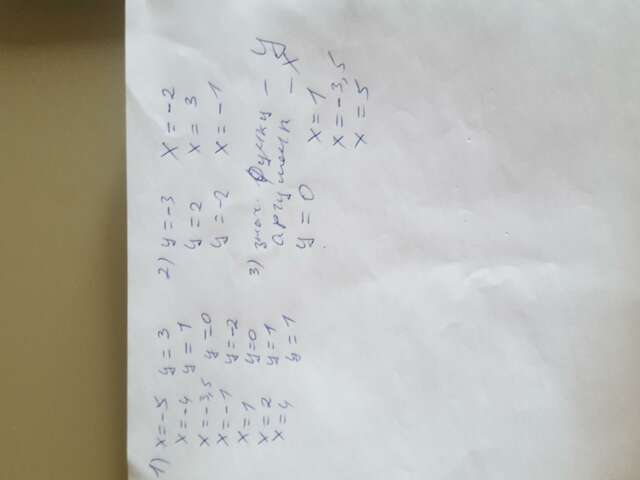 1) x=-5 y=3
x=-4 y=1
x=-3,5 y=0
x=-1 y=-2
x=1 y=0
x=2 y=1
x=4 y=1
2) y=-3 x=-2
y=2 x=3
y=-2 x=-1
3) знач. функци - y
аргумент - x
y=0 x=1
x=-3,5
x=5